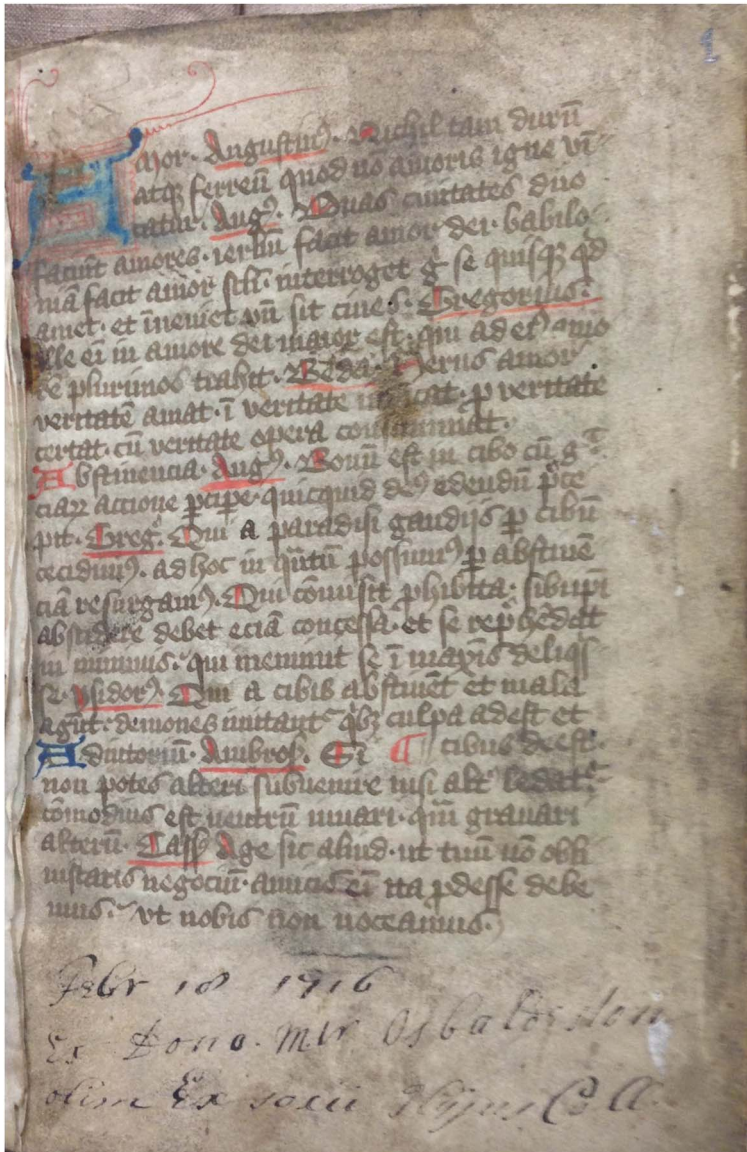 Amor. Augustinꝰ. Nichil tam durū
atqꝫ ferreū quod nō amoris igne vī
catur. Augꝰ. Duas ciuitates duo
faciūt amores. ierl̄m facit amor dei. babilo
niā facit amor sc̄li. interroget g̊ se quisqꝫ qd̓
amet. et īueniet vn̄ sit ciues. Gregorius.
Ille ei̅ in amore dei maior est. qui ad etꝰ amo
rē plurimos trahit. Beda. Verus amor
veritatē amat. ī veritate iudicat. ꝓ veritate
certat. cū veritate opera consummat.
Abstinencia. Augꝰ. Bonū est in cibo cū gᵃ
ciaꝝ accione ꝑcipe. quicquid deꝰ edendū p̄ce
pit. Greg̓. Qui a paradisi gaudijs ꝑ cibū
cecidimꝰ. ad hoc in q̄ntū possumꝰ ꝑ abstinē
ciā resurgamꝰ. Qui cōmisit ꝓhibita. sibimꝑi
abscidere debet eciā concessa. et se rep̄hēdat
in minimis. qui meminit se ī maxīs deliqs
se. ysidorꝰ. Qui a cibis abstinēt et mala
agūt. demones imitant᷑ qⁱbꝫ culpa adest et
Adiutoriū. Ambros̓. Si ¶ cibus deest.
non potes alteri subuenire nisi alt̓ ledat᷑.
cōmodius est neutrū iuuari. qm̄ grauari
alterū. Cassꝰ Age sic aliud. ut tuū nō obli
uistaris negociū. amicis ei̅ ita ꝓdesse debe
mus. vt nobis non noceamus.
Febr 18 1716
Ex Dono. Mtr Osbaldeston
olim Ex socii Hujus Coll.